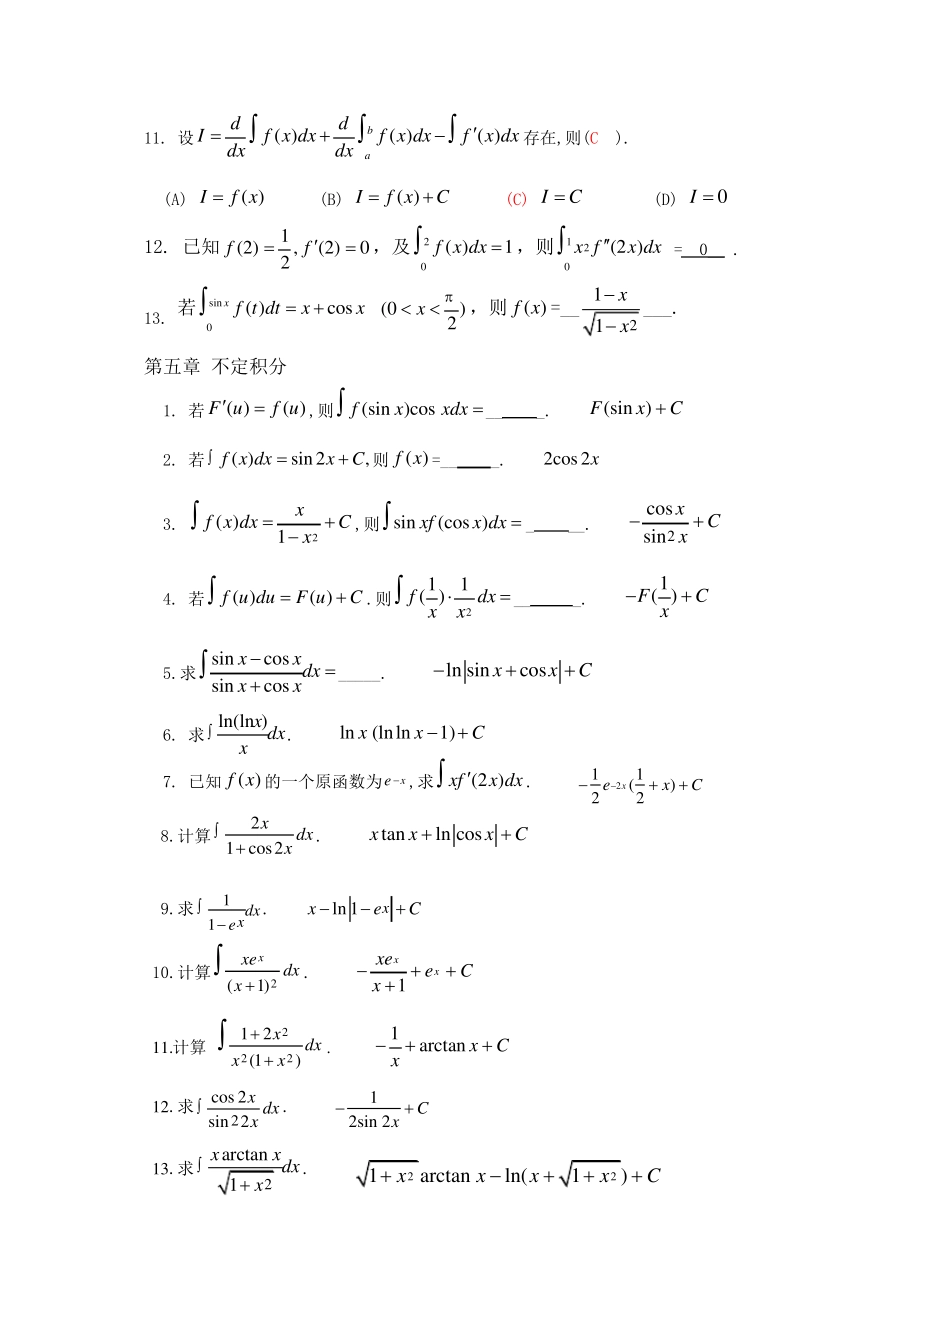 11. 设 I = d/dx ∫ f(x)dx + d/dx ∫_a^b f(x)dx − ∫ f′(x)dx 存在,则(C ).
(A) I = f(x) (B) I = f(x) + C (C) I = C (D) I = 0
12. 已知 f(2) = 1/2, f′(2) = 0，及 ∫_0^2 f(x)dx = 1，则 ∫_0^1 x² f″(2x)dx = 0 .
13. 若 ∫_0^{sin x} f(t)dt = x + cos x (0 < x < π/2)，则 f(x) =__ (1 − x)/√(1 − x²) ___.
第五章 不定积分
1. 若 F′(u) = f(u),则 ∫ f(sin x)cos xdx = ______. F(sin x) + C
2. 若 ∫ f(x)dx = sin 2x + C,则 f(x) =______. 2cos 2x
3. ∫ f(x)dx = x/(1 − x²) + C,则 ∫ sin xf(cos x)dx = ______. −cos x/sin² x + C
4. 若 ∫ f(u)du = F(u) + C.则 ∫ f(1/x)·1/x² dx = ______. −F(1/x) + C
5.求 ∫ (sin x − cos x)/(sin x + cos x) dx = _____. −ln|sin x + cos x| + C
6. 求 ∫ ln(lnx)/x dx. ln x (ln ln x −1) + C
7. 已知 f(x) 的一个原函数为 e^{−x},求 ∫ xf′(2x)dx. −1/2 e^{−2x}(1/2 + x) + C
8.计算 ∫ 2x/(1 + cos 2x) dx. x tan x + ln|cos x| + C
9.求 ∫ 1/(1 − e^x) dx. x − ln|1 − e^x| + C
10.计算 ∫ xe^x/(x + 1)² dx. −xe^x/(x + 1) + e^x + C
11.计算 ∫ (1 + 2x²)/(x²(1 + x²)) dx. −1/x + arctan x + C
12.求 ∫ cos 2x/sin² 2x dx. −1/(2sin 2x) + C
13.求 ∫ x arctan x/√(1 + x²) dx. √(1 + x²) arctan x − ln(x + √(1 + x²)) + C